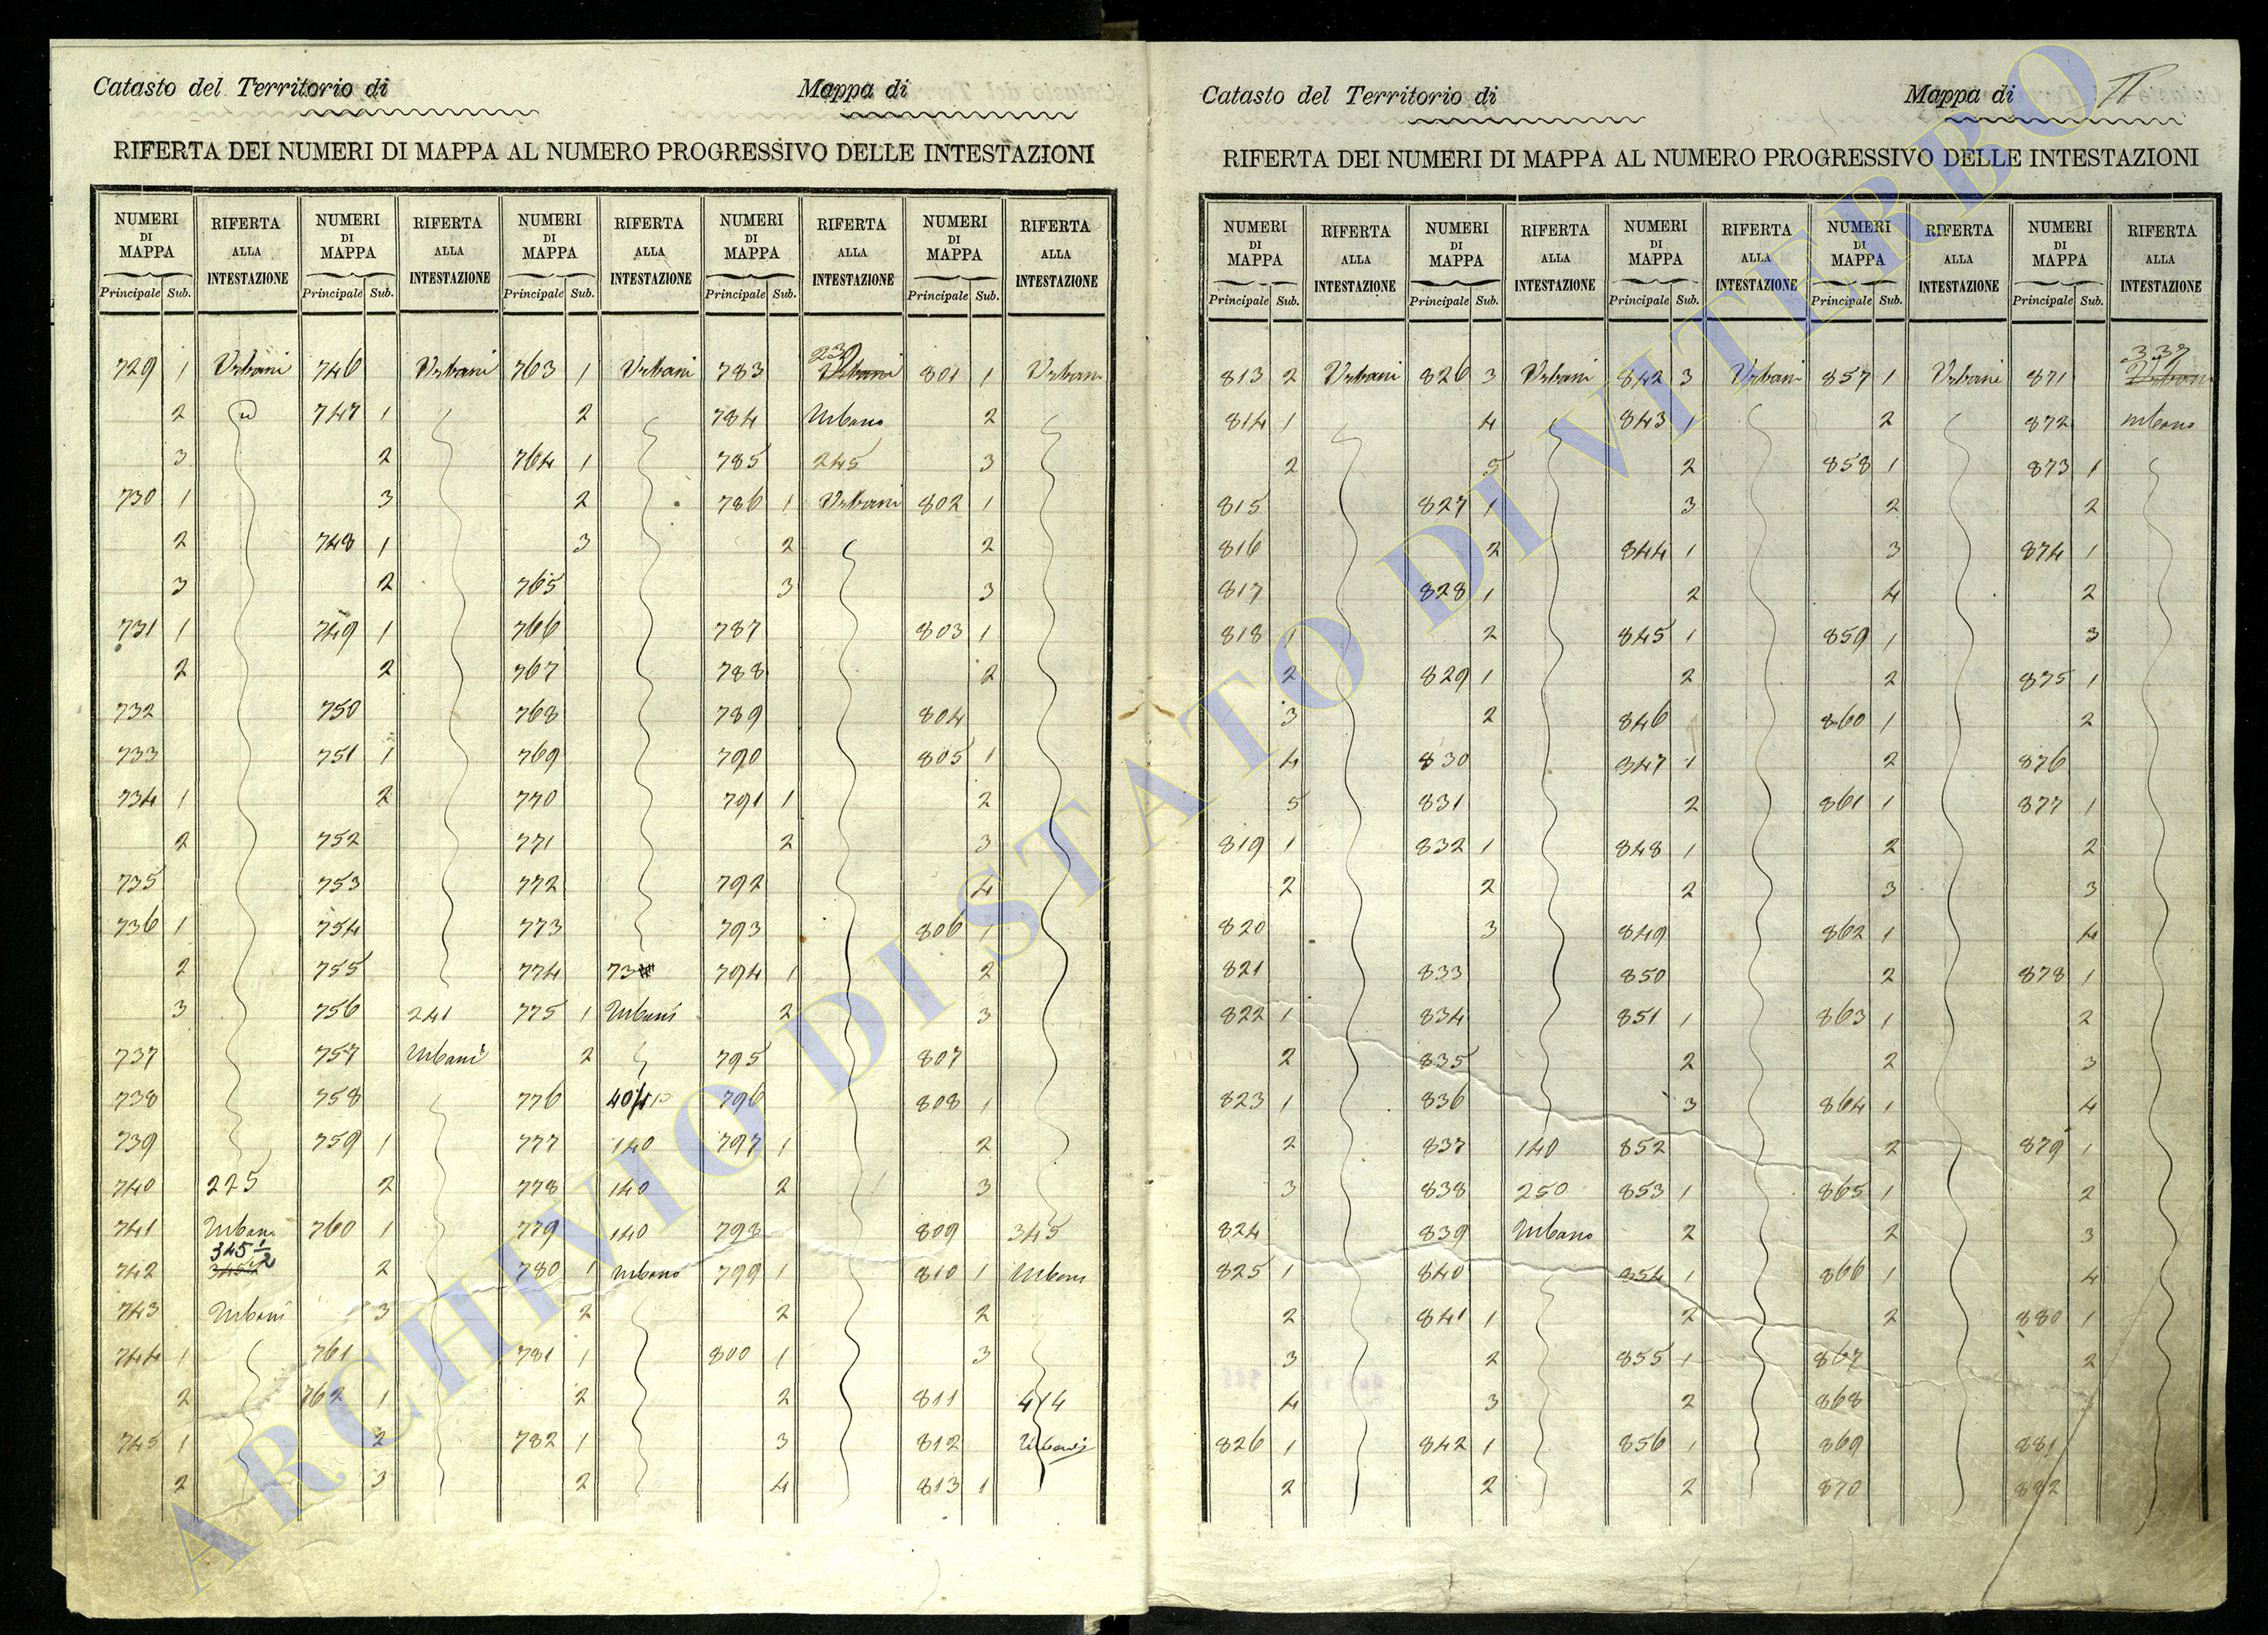 Catasto del Territorio di Mappa di
RIFERTA DEI NUMERI DI MAPPA AL NUMERO PROGRESSIVO DELLE INTESTAZIONI
NUMERI DI MAPPA RIFERTA ALLA INTESTAZIONE NUMERI DI MAPPA RIFERTA ALLA INTESTAZIONE NUMERI DI MAPPA RIFERTA ALLA INTESTAZIONE NUMERI DI MAPPA RIFERTA ALLA INTESTAZIONE NUMERI DI MAPPA RIFERTA ALLA INTESTAZIONE
Principale Sub. Principale Sub. Principale Sub. Principale Sub. Principale Sub.
729 1 Urbani 746 Urbani 763 1 Urbani 783 Urbani 801 1 Urbani
2 747 1 2 784 Urbano 2
3 2 764 1 785 245 3
730 1 3 2 786 1 Urbani 802 1
2 748 1 3 2 2
3 2 765 3 3
731 1 749 1 766 787 803 1
2 2 767 788 2
732 750 768 789 804
733 751 1 769 790 805 1
734 1 2 770 791 1 2
2 752 771 2 3
735 753 772 792 4
736 1 754 773 793 806 1
2 755 774 73 794 1 2
3 756 241 775 1 Urbani 2 3
737 757 Urbani 2 795 807
738 758 776 796 808 1
739 759 1 777 140 797 1 2
740 225 2 778 140 2 3
741 Urbano 760 1 779 140 798 809 345
345 1/2
742 2 780 1 Urbano 799 1 810 1 Urbani
743 Urbani 3 2 2 2
744 1 761 781 1 800 1 3
2 762 1 2 2 811 414
745 1 2 782 1 3 812 Urbani
2 3 2 4 813 1
Catasto del Territorio di Mappa di
RIFERTA DEI NUMERI DI MAPPA AL NUMERO PROGRESSIVO DELLE INTESTAZIONI
NUMERI DI MAPPA RIFERTA ALLA INTESTAZIONE NUMERI DI MAPPA RIFERTA ALLA INTESTAZIONE NUMERI DI MAPPA RIFERTA ALLA INTESTAZIONE NUMERI DI MAPPA RIFERTA ALLA INTESTAZIONE NUMERI DI MAPPA RIFERTA ALLA INTESTAZIONE
Principale Sub. Principale Sub. Principale Sub. Principale Sub. Principale Sub.
337
813 2 Urbani 826 3 Urbani 842 3 Urbani 857 1 Urbani 871 Urbani
814 1 4 843 1 2 872 Urbano
2 5 2 858 1 873 1
815 827 1 3 2 2
816 2 844 1 3 874 1
817 828 1 2 4 2
818 1 2 845 1 859 1 3
2 829 1 2 2 875 1
3 2 846 860 1 2
4 830 847 1 2 876
5 831 2 861 1 877 1
819 1 832 1 848 1 2 2
2 2 2 3 3
820 3 849 862 1 4
821 833 850 2 878 1
822 1 834 851 1 863 1 2
2 835 2 2 3
823 1 836 3 864 1 4
2 837 140 852 2 879 1
3 838 250 853 1 865 1 2
824 839 Urbano 2 2 3
825 1 840 854 1 866 1 4
2 841 1 2 2 880 1
3 2 855 1 867 2
4 3 2 868 3
826 1 842 1 856 1 869 881
2 2 2 870 882
ARCHIVIO DI STATO DI VITERBO